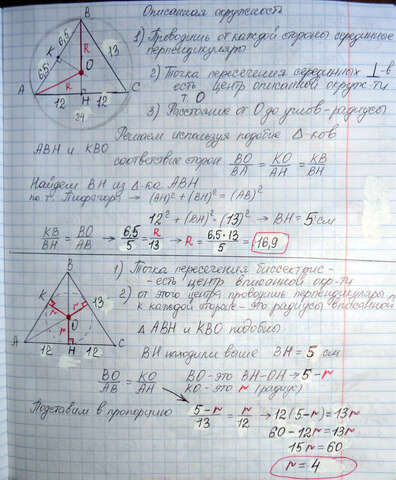 Описанная окружность
1) Проводишь от каждой стороны серединные перпендикуляры
2) Точка пересечения серединных ⊥-в
есть центр описанной окруж-ти
т. O
3) Расстояние от O до углов - радиусы
B
6,5
K
6,5
R
13
O
R
A
12
H
12
C
24
Решаем используя подобие Δ-ков
ABH и KBO
соответствие сторон BO/BA = KO/AH = KB/BH
Найдем BH из Δ-ка ABH
по т. Пифагора → (AH)² + (BH)² = (AB)²
12² + (BH)² = (13)² → BH = 5 см
KB/BH = BO/AB → 6,5/5 = R/13 → R = 6,5·13/5 = 16,9
B
K
r
13
r
O
r
A
12
H
12
C
1) Точка пересечения биссектрис -
- есть центр вписанной окр-ти
2) от этого центра проводишь перпендикуляры
к каждой стороне - это радиусы вписанной
Δ ABH и KBO подобны
BH находили выше BH = 5 см
BO/AB = KO/AH
BO - это BH-OH → 5-r
KO - это r (радиус)
Подставим в пропорцию 5-r/13 = r/12 → 12(5-r) = 13r
60 - 12r = 13r
15r = 60
r = 4